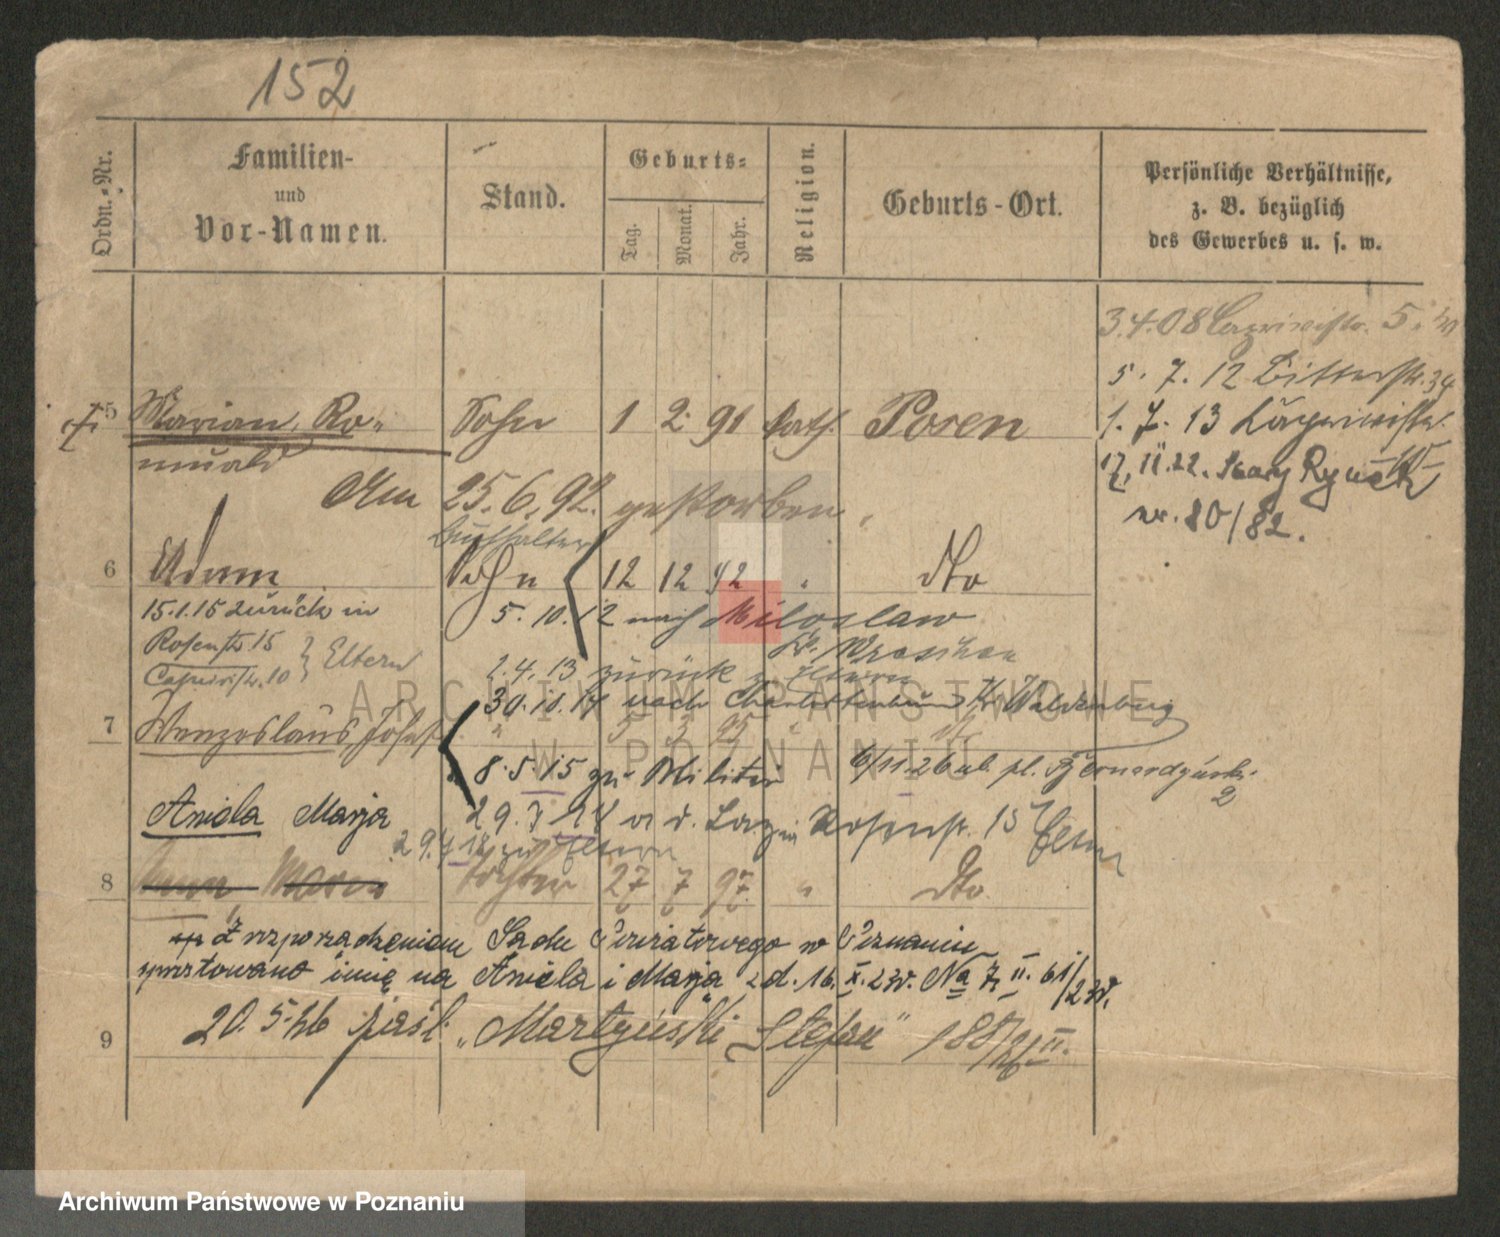 152
Ordn.-Nr.
Familien-
und
Vor-Namen.
Stand.
Geburts-
Tag.
Monat.
Jahr.
Religion.
Geburts-Ort.
Persönliche Verhältnisse,
z. B. bezüglich
des Gewerbes u. s. w.
3.4.08 5
5. 7. 12 Bitterstr. 34
5 Marian, Ro- Sohn 1 2 91 kath. Posen
1. 7. 13
muald
17. II. 22. Stary Rynek
nr. 80/82.
Am 25.6.92. gestorben.
Buchhalter
6 Adam Sohn 12 12 92 " dto
15.1.15 zurück in
5. 10. 12 nach Miloslaw
Kr. Wreschen
Rosenstr. 15
Eltern
2.4.13 zurück z. Eltern
30.10.14 nach Waldenburg
7 Wenzeslaus, Josef " 5 3 95 "
8.5.15 zu Militär
6/11.26 ul. pl. Bernardyński
2
Aniela Marja
29.
Rosenstr. 15 Eltern
29. zu Eltern
8 Tochter 27 7 97 " dto
Z rozporządzeniem Sądu Powiatowego w Poznaniu
sprostowano imię na "Aniela i Marja" zd. 16. X. 23r. Na 7 II. 61/23r.
9 20.5.26 pasb. "Martyński Stefan" 1887/26 II.
Archiwum Państwowe w Poznaniu
ARCHIWUM PAŃSTWOWE
W POZNANIU